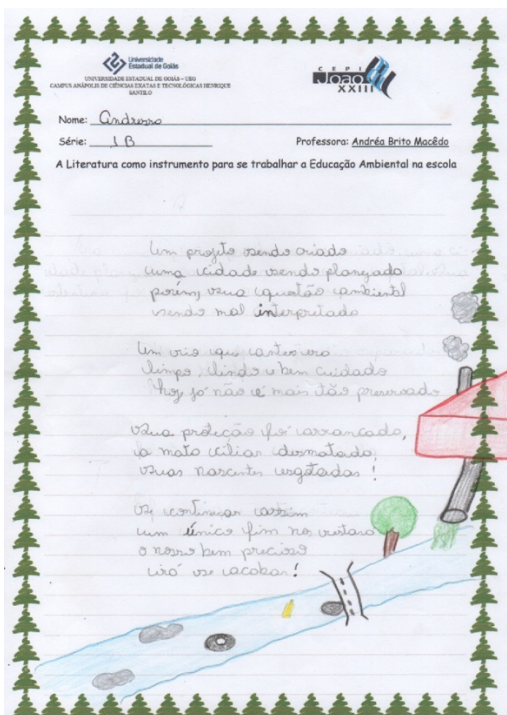 Universidade
Estadual de Goiás
UNIVERSIDADE ESTADUAL DE GOIÁS – UEG
CAMPUS ANÁPOLIS DE CIÊNCIAS EXATAS E TECNOLÓGICAS HENRIQUE
SANTILO
CEPI
JOÃO
XXIII
Nome: Andressa
Série: 1B Professora: Andréa Brito Macêdo
A Literatura como instrumento para se trabalhar a Educação Ambiental na escola
Um projeto sendo criado
uma cidade sendo planejado
porém, sua questão ambiental
sendo mal interpretado
Um rio que antes era
limpo, lindo e bem cuidado
Hoje já não é mais tão preservado
Sua proteção foi arrancado,
a mata ciliar desmatada,
suas nascentes esgotadas!
Se continuar assim
um único fim nos restará
o nosso bem precioso
irá se acabar!